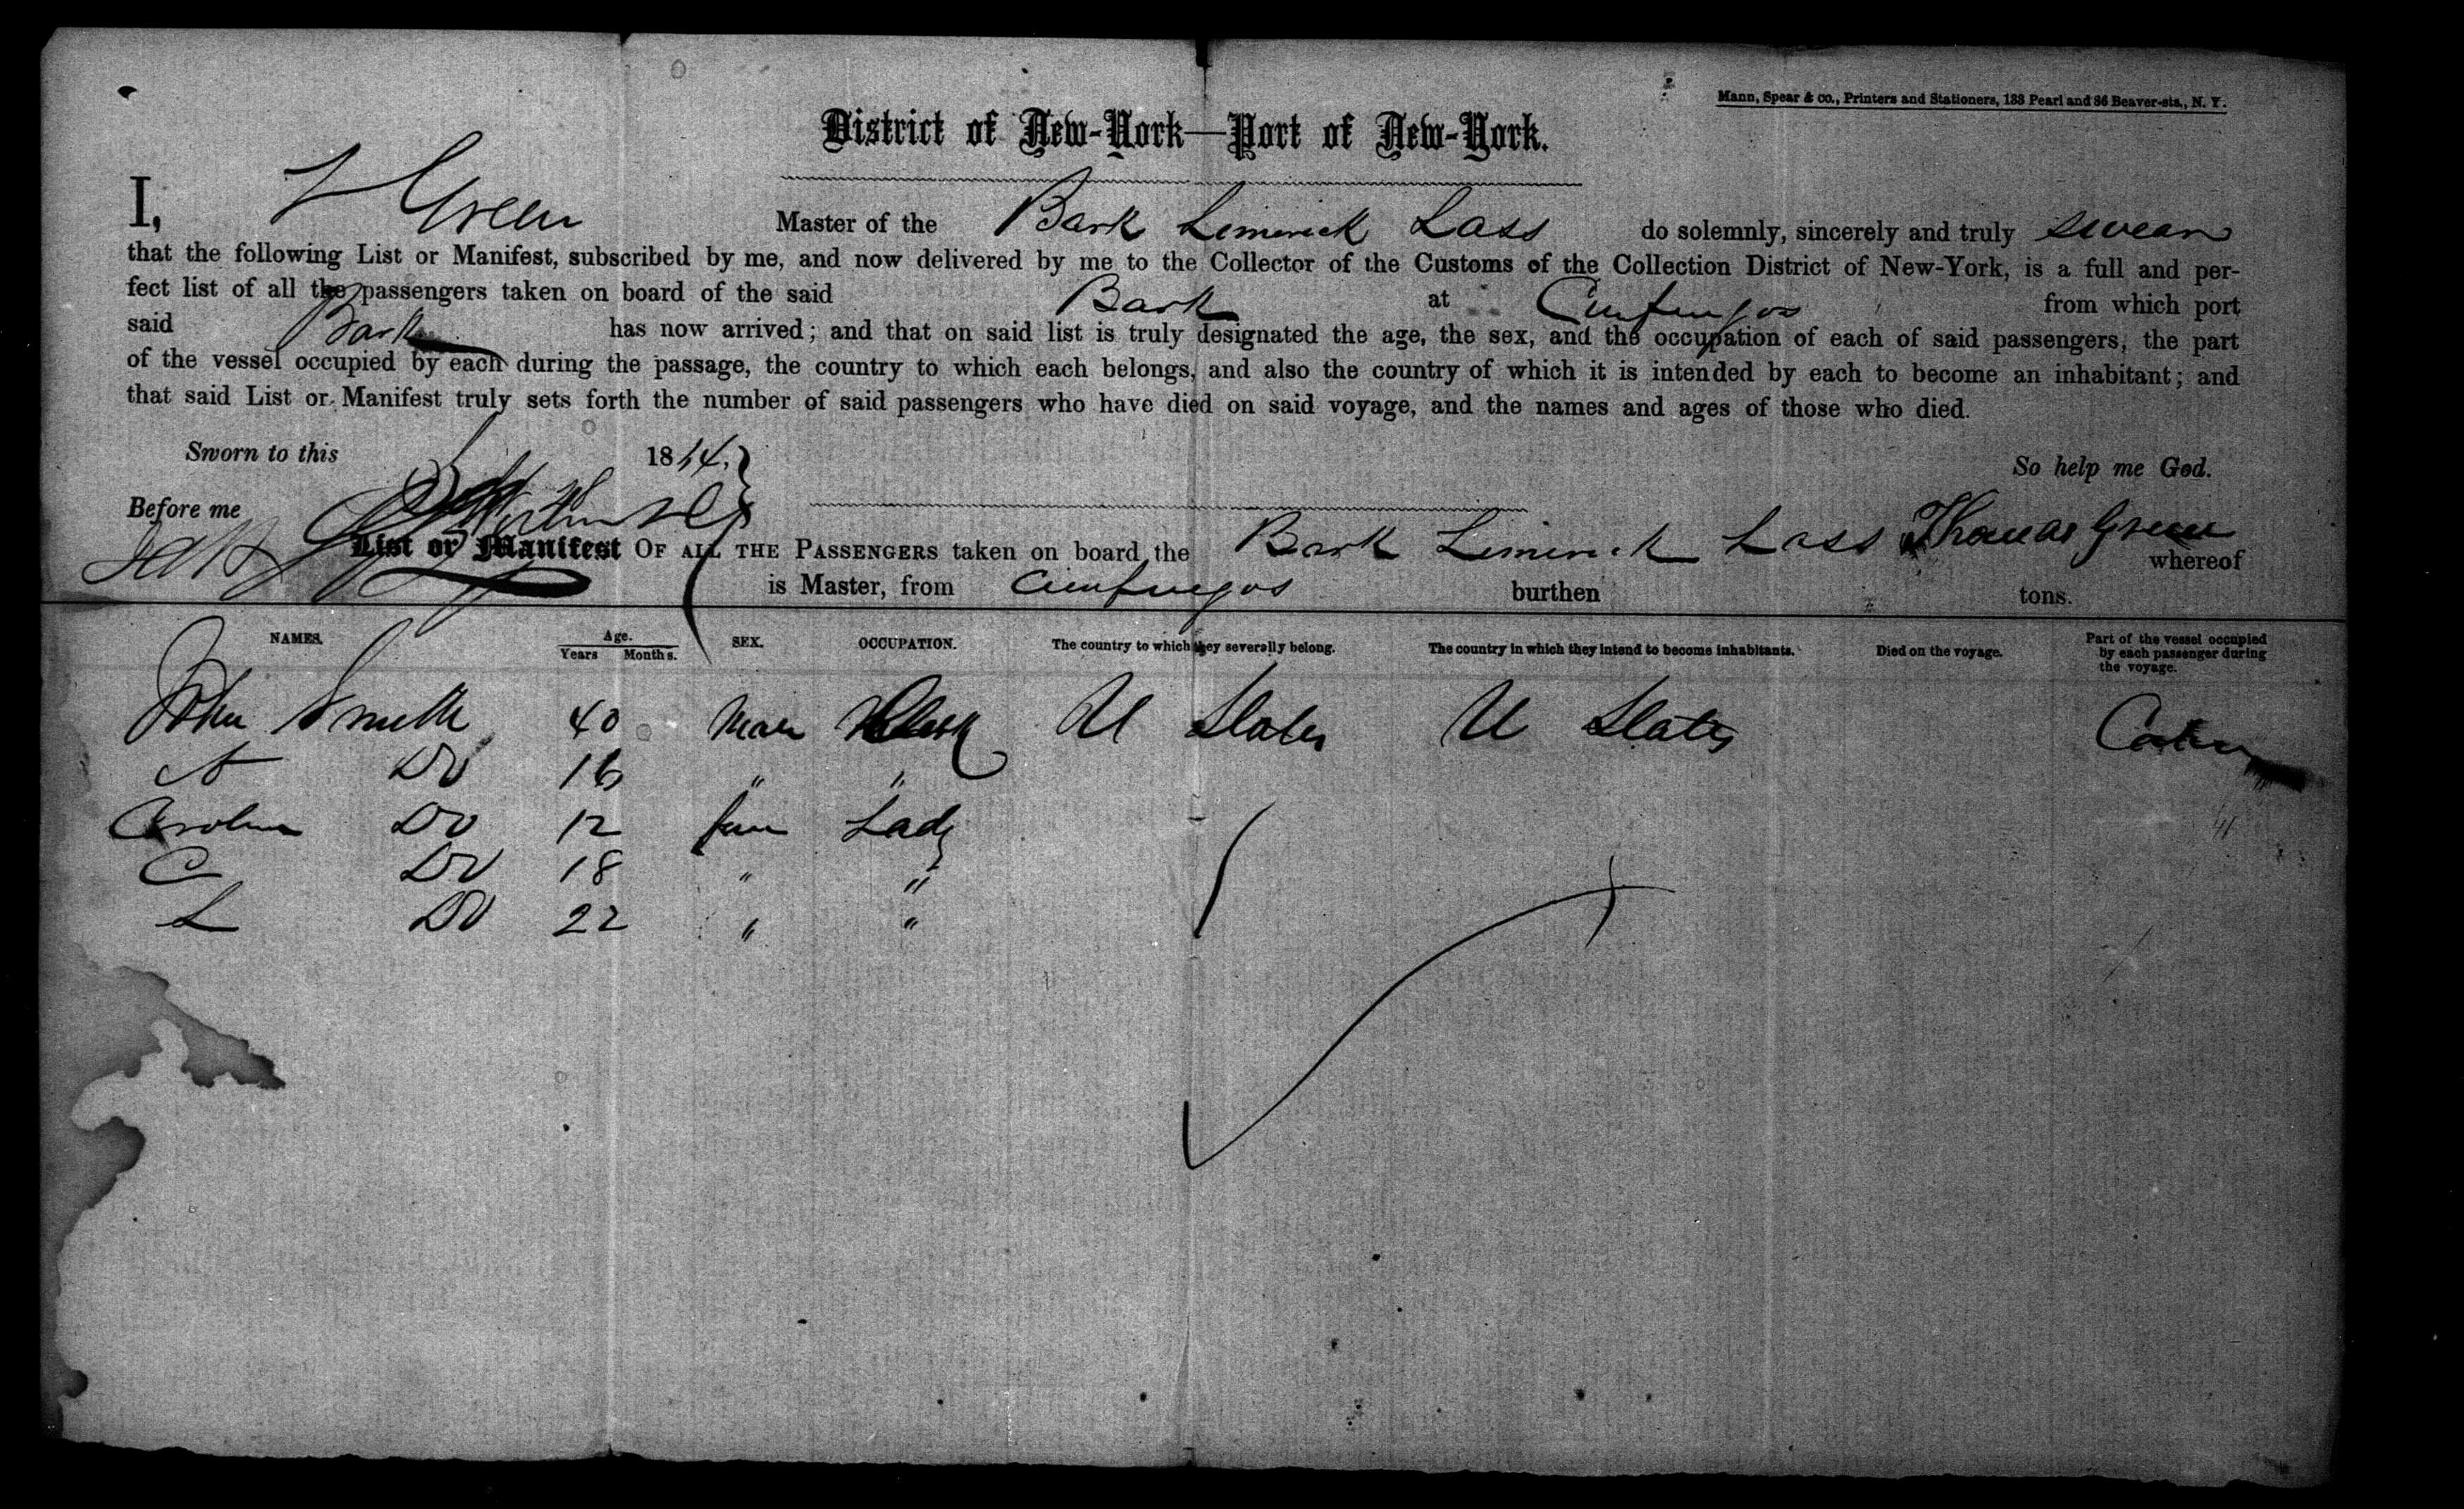 Mann, Spear & co., Printers and Stationers, 133 Pearl and 86 Beaver-sts., N. Y.
District of New-York—Port of New-York.
I, T Green Master of the Bark Limerick Lass do solemnly, sincerely and truly swear
that the following List or Manifest, subscribed by me, and now delivered by me to the Collector of the Customs of the Collection District of New-York, is a full and per-
fect list of all the passengers taken on board of the said Bark at Cienfuegos from which port
said Bark has now arrived; and that on said list is truly designated the age, the sex, and the occupation of each of said passengers, the part
of the vessel occupied by each during the passage, the country to which each belongs, and also the country of which it is intended by each to become an inhabitant; and
that said List or Manifest truly sets forth the number of said passengers who have died on said voyage, and the names and ages of those who died.
Sworn to this 18 So help me God.
Before me
List or Manifest OF ALL THE PASSENGERS taken on board the Bark Limerick Lass Thomas Green whereof
is Master, from Cienfuegos burthen tons.
NAMES. Age. Years Months. SEX. OCCUPATION. The country to which they severally belong. The country in which they intend to become inhabitants. Died on the voyage. Part of the vessel occupied by each passenger during the voyage.
John Smith 40 Male U States U States Cabin
A Do 16 " "
Do 12 fem Lady
C Do 18 " "
L Do 22 " "